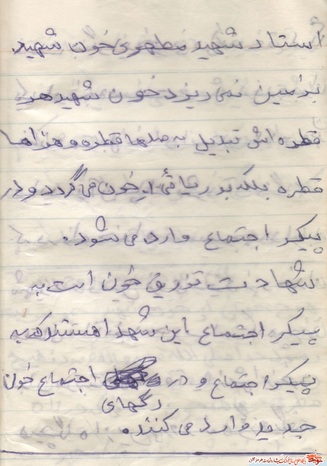 استاد شهید مطهری خون شهید
بزمین نمی ریزد خون شهید هر
قطره اش تبدیل به صدها قطره و هزارها
قطره بلکه بدریائی از خون می گردد و در
پیکر اجتماع وارد می شود.
شهادت تزریق خون است به
پیکر اجتماع این شهدا هستند که به
پیکر اجتماع و در رگهای اجتماع خون
جدید وارد می کنند.